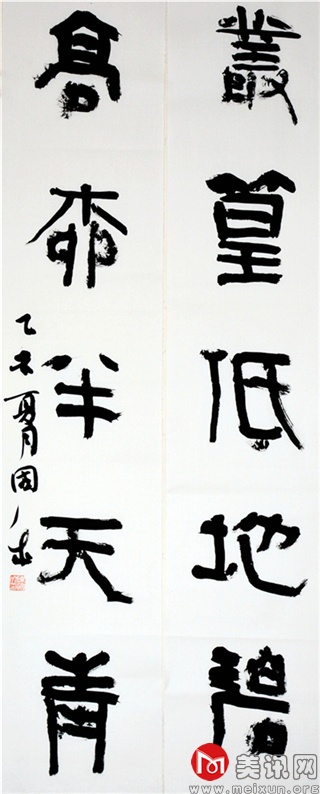 叢篁低地碧
高柳半天青
乙未夏月
美讯网
www.meixun.org